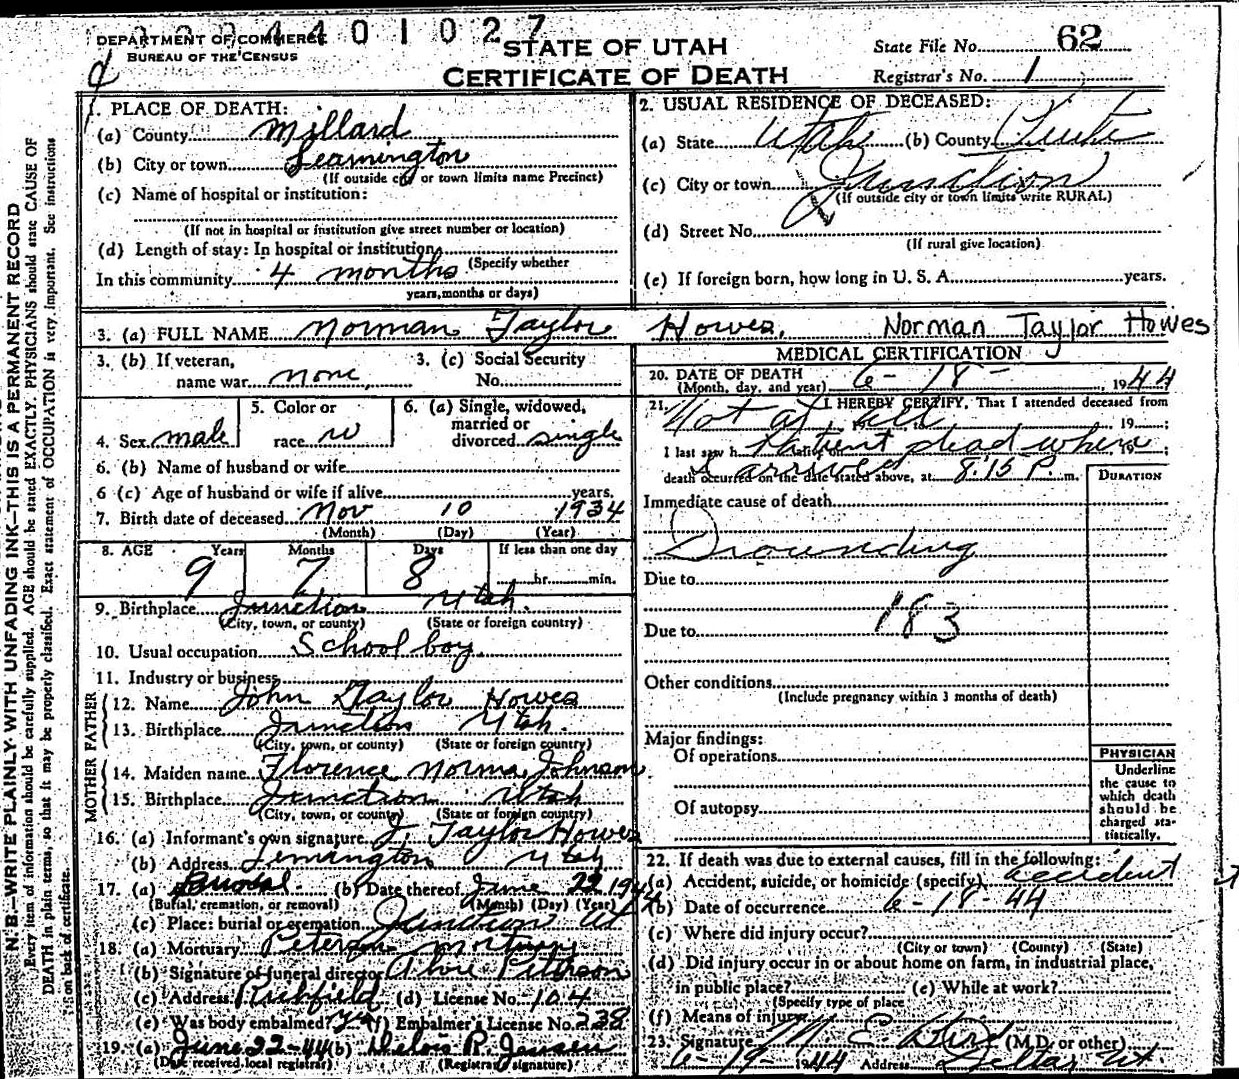 2 3 4 4 0 1 0 2 7
DEPARTMENT OF COMMERCE
BUREAU OF THE CENSUS
STATE OF UTAH
CERTIFICATE OF DEATH
State File No. 62
Registrar's No. 1
N. B.—WRITE PLAINLY WITH UNFADING INK—THIS IS A PERMANENT RECORD
Every item of information should be carefully supplied. AGE should be stated EXACTLY. PHYSICIANS should state CAUSE OF
DEATH in plain terms, so that it may be properly classified. Exact statement of OCCUPATION is very important. See instructions
on back of certificate.
1. PLACE OF DEATH:
(a) County Millard
(b) City or town Leamington
(If outside city or town limits name Precinct)
(c) Name of hospital or institution:
(If not in hospital or institution give street number or location)
(d) Length of stay: In hospital or institution
(Specify whether
In this community 4 months
years, months or days)
2. USUAL RESIDENCE OF DECEASED:
(a) State Utah (b) County Piute
(c) City or town Junction
(If outside city or town limits write RURAL)
(d) Street No.
(If rural give location)
(e) If foreign born, how long in U. S. A. years.
3. (a) FULL NAME Norman Taylor Howes. Norman Taylor Howes
3. (b) If veteran, name war none
3. (c) Social Security No.
4. Sex male
5. Color or race w
6. (a) Single, widowed, married or divorced single
6. (b) Name of husband or wife
6 (c) Age of husband or wife if alive years.
7. Birth date of deceased Nov 10 1934
(Month) (Day) (Year)
8. AGE Years Months Days If less than one day
9 7 8 hr. min.
9. Birthplace Junction Utah.
(City, town, or county) (State or foreign country)
10. Usual occupation School boy.
11. Industry or business
FATHER
12. Name John Taylor Howes
13. Birthplace Junction Utah.
(City, town, or county) (State or foreign country)
MOTHER
14. Maiden name Florence Norma Johnson
15. Birthplace Junction Utah
(City, town, or county) (State or foreign country)
16. (a) Informant's own signature J. Taylor Howes
(b) Address Lemington Utah
17. (a) Burial (b) Date thereof June 22 1944
(Burial, cremation, or removal) (Month) (Day) (Year)
(c) Place: burial or cremation Junction Ut
18. (a) Mortuary Peterson Mortuary
(b) Signature of funeral director Peterson
(c) Address Richfield (d) License No. 104
(e) Was body embalmed? yes (f) Embalmer's License No. 238
19. (a) June 22-44 (b) Delois R. Jensen
(Date received local registrar) (Registrar's signature)
MEDICAL CERTIFICATION
20. DATE OF DEATH
(Month, day, and year) 6- 18- 1944
21. I HEREBY CERTIFY, That I attended deceased from
Not at all 19 ;
I last saw h Patient dead when 19 ;
I arrived
death occurred on the date stated above, at 8:15 P m.
DURATION
Immediate cause of death
Drounding
Due to
183
Due to
Other conditions
(Include pregnancy within 3 months of death)
Major findings:
Of operations
Of autopsy
PHYSICIAN
Underline
the cause to
which death
should be
charged sta-
tistically.
22. If death was due to external causes, fill in the following:
(a) Accident, suicide, or homicide (specify) accident
(b) Date of occurrence 6-18-44
(c) Where did injury occur?
(City or town) (County) (State)
(d) Did injury occur in or about home on farm, in industrial place,
in public place? (e) While at work?
(Specify type of place
(f) Means of injury
23. Signature M. E. Bird (M.D. or other)
6-19-1944 Address Delta, Ut.